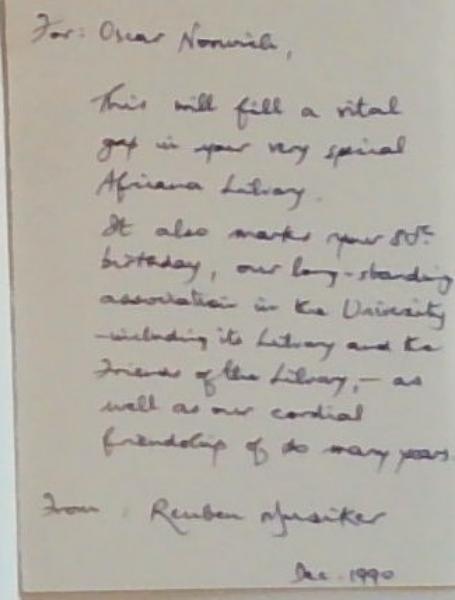 For: Oscar Norwich,
This will fill a vital
gap in your very special
Africana Library.
It also marks your 80th
birthday, our long-standing
association in the University
-including its Library and the
Friends of the Library, - as
well as our cordial
friendship of so many years
From: Reuben Musiker
Dec. 1990